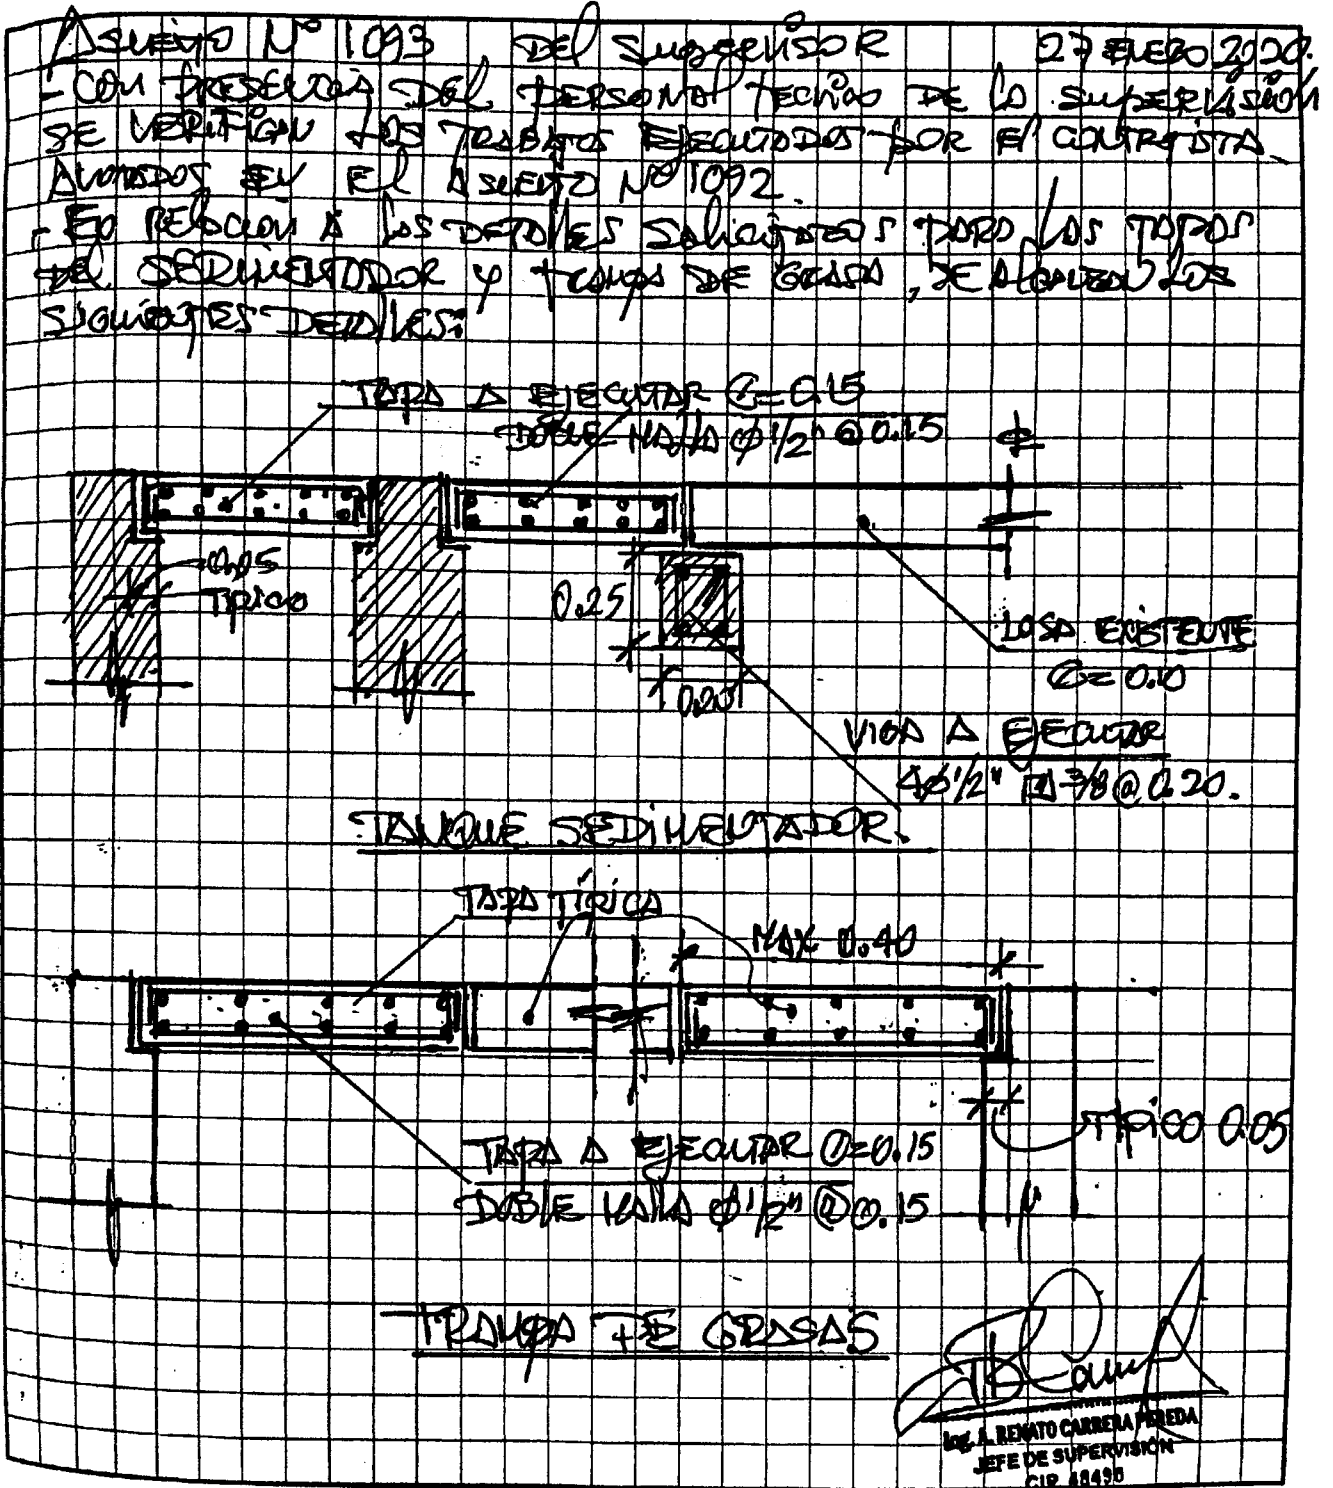 ASIENTO N° 1093 DEL SUPERVISOR 27 ENERO 2020.
- CON PRESENCIA DEL PERSONAL TECNICO DE LA SUPERVISIÓN
SE VERIFICAN LOS TRABAJOS EJECUTADOS POR EL CONTRATISTA
ANOTADOS EN EL ASIENTO N° 1092
- EN RELACION A LOS DETALLES SOLICITADOS PARA LAS TAPAS
DEL SEDIMENTADOR Y TRAMPA DE GRASA, SE ALCANZAN LOS
SIGUIENTES DETALLES:
TAPA A EJECUTAR e=0.15
DOBLE MALLA Ø 1/2" @ 0.15
0.05
TIPICO
0.25
0.20
LOSA EXISTENTE
e=0.10
VIGA A EJECUTAR
4Ø 1/2" 3/8 @ 0.20.
TANQUE SEDIMENTADOR.
TAPA TÍPICA
MAX 0.40
TIPICO 0.05
TAPA A EJECUTAR e=0.15
DOBLE MALLA Ø 1/2" @ 0.15
TRAMPA DE GRASAS
Ing. A. RENATO CARRERA PEREDA
JEFE DE SUPERVISIÓN
CIP 48495